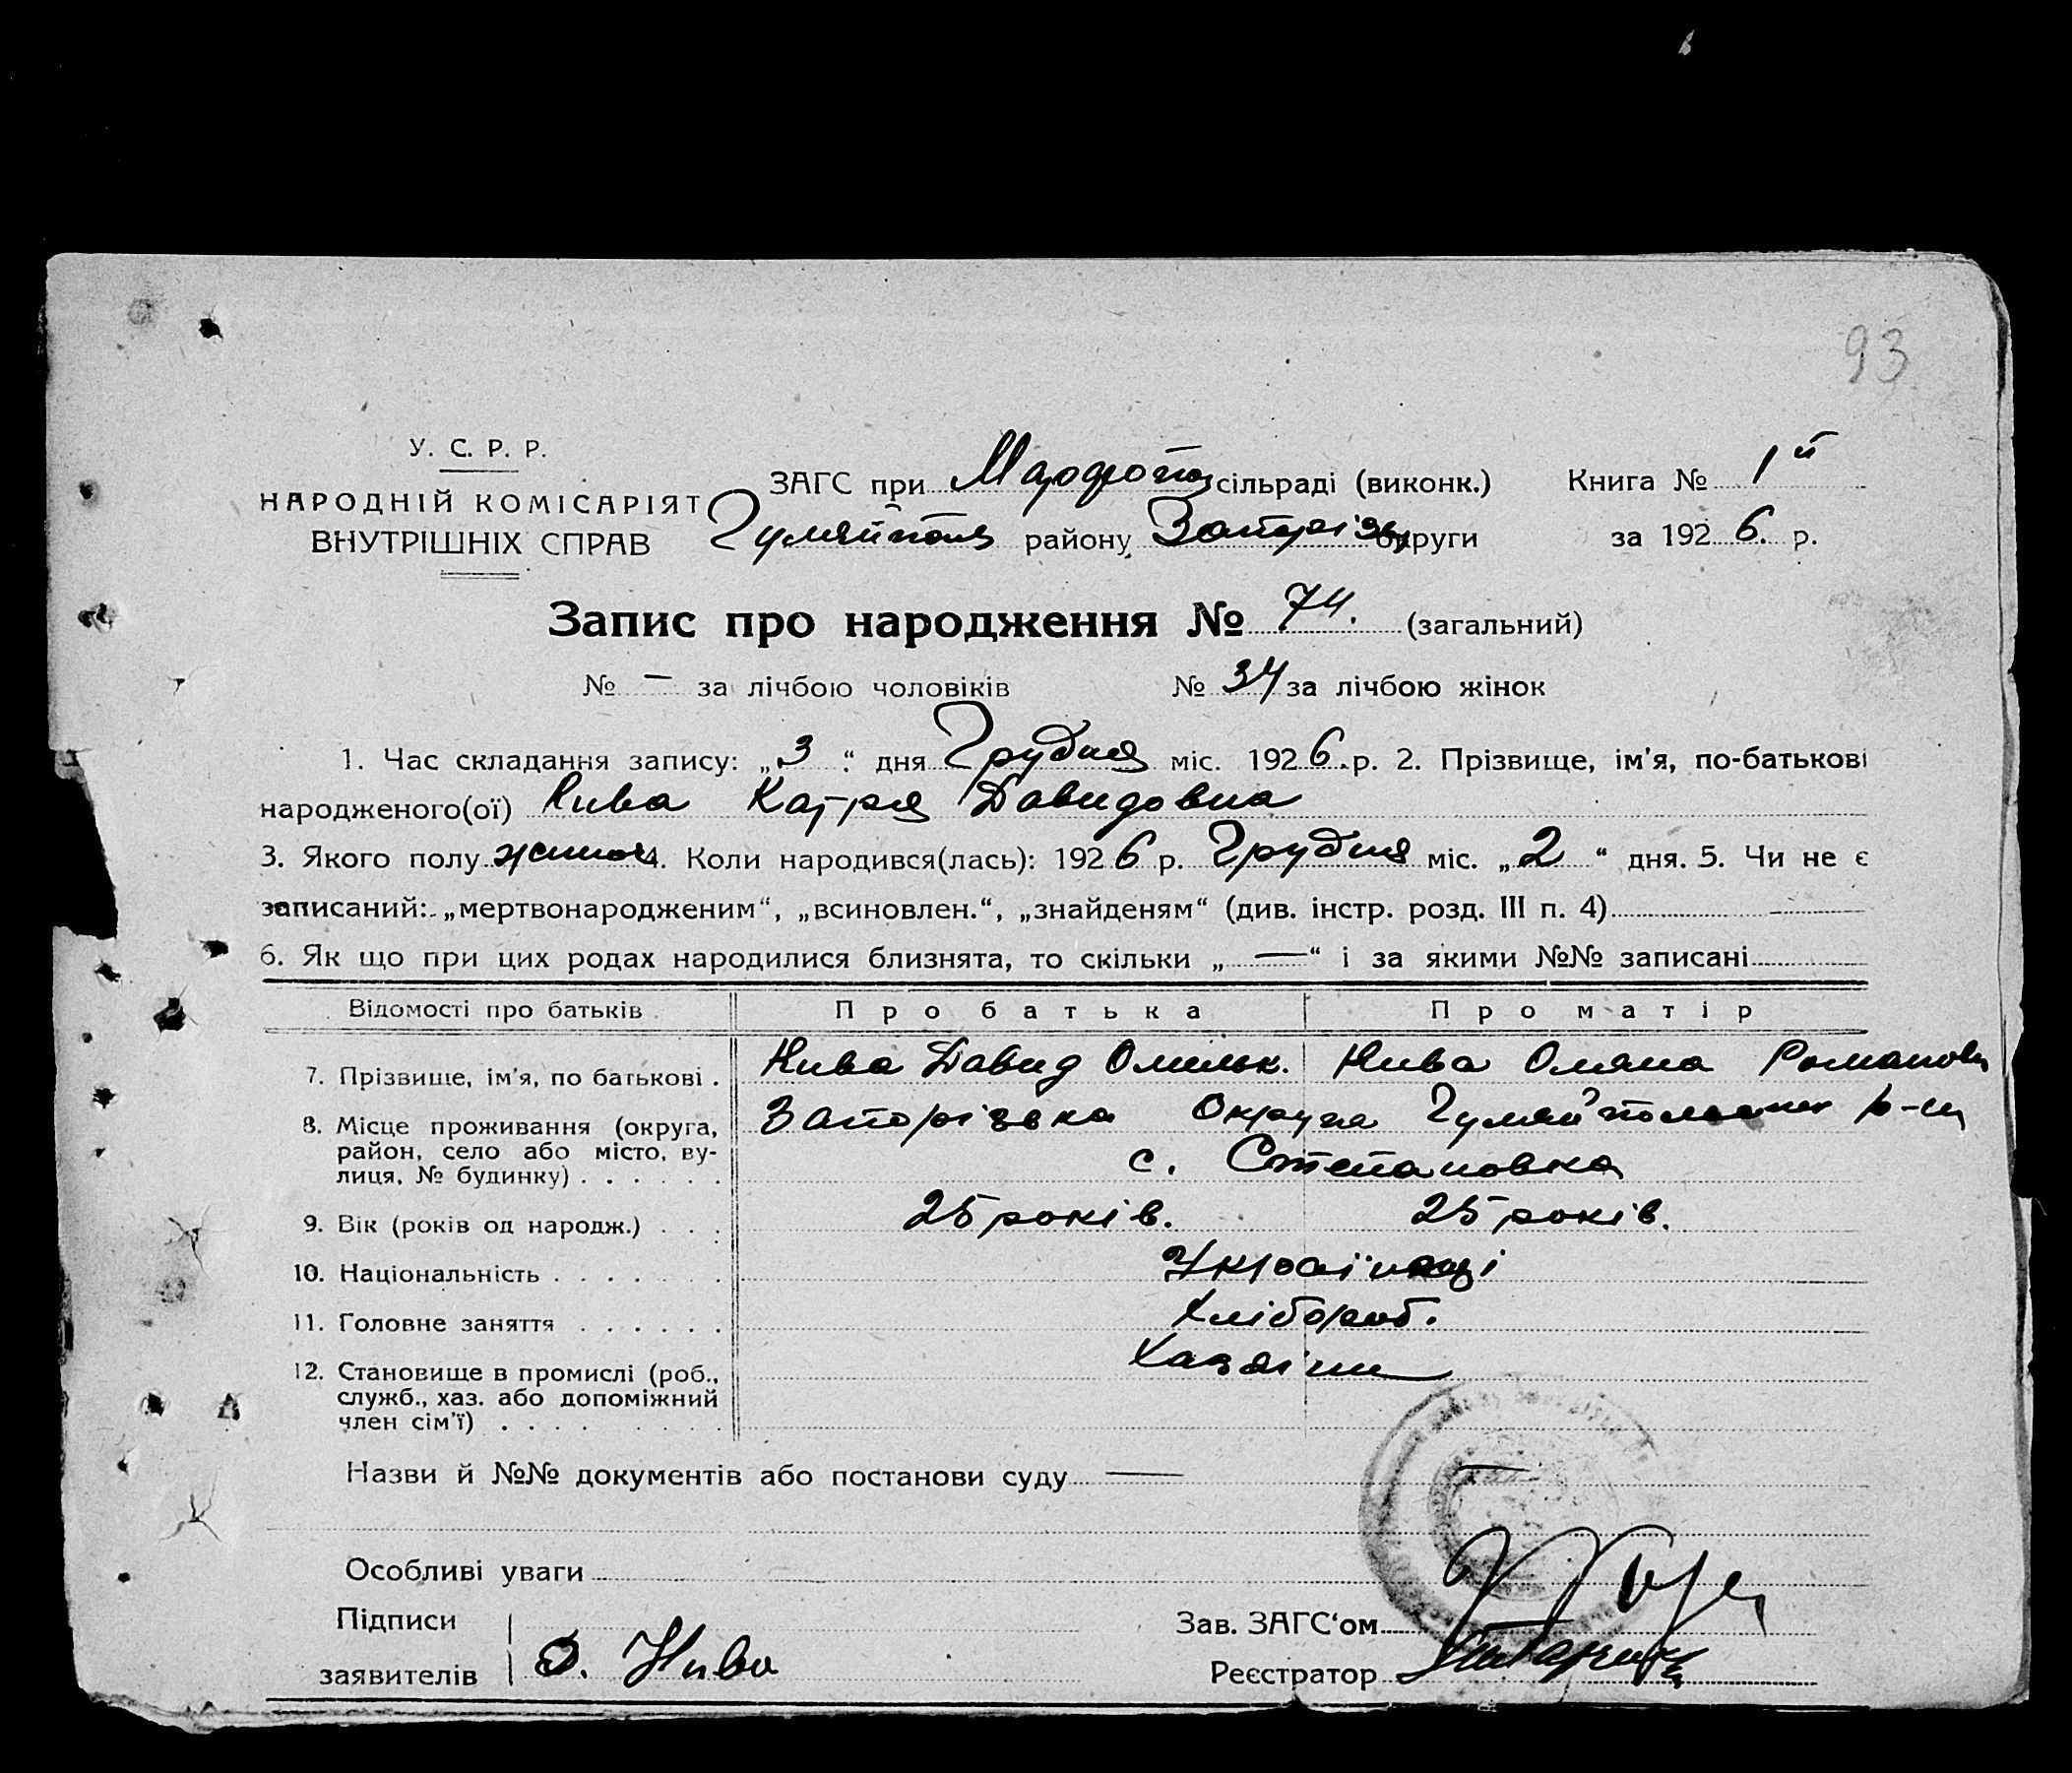 93
У. С. Р. Р.
НАРОДНІЙ КОМІСАРІЯТ
ВНУТРІШНІХ СПРАВ
ЗАГС при сільраді (виконк.) Книга № 1й
Гуляйполя району Запоріз округи за 1926. р.
Запис про народження № 74. (загальний)
№ — за лічбою чоловіків № 34 за лічбою жінок
1. Час складання запису: „3“ дня Грудня міс. 1926. р. 2. Прізвище, ім'я, по-батькові
народженого(ої) Нива Катря Давидовна
3. Якого полу жиноч 4. Коли народився(лась): 1926 р. Грудня міс. „2“ дня. 5. Чи не є
записаний: „мертвонародженим“, „всиновлен.“, „знайденям“ (див. інстр. розд. III п. 4) —
6. Як що при цих родах народилися близнята, то скільки „—“ і за якими №№ записані
Відомості про батьків Про батька Про матір
7. Прізвище, ім'я, по батькові . Нива Давид Омельк. Нива Оляна Романовн
8. Місце проживання (округа, Запорізька Округа р-н
район, село або місто, ву-
лиця, № будинку) с. Степановка
9. Вік (років од народж.) 25 років. 25 років.
10. Національність Україінці
11. Головне заняття Хлібороб.
12. Становище в промислі (роб., Хазяіни
служб., хаз. або допоміжний
член сім'ї)
Назви й №№ документів або постанови суду — —
Особливі уваги
Підписи Зав. ЗАГС‘ом
заявителів Д. Нива Реєстратор